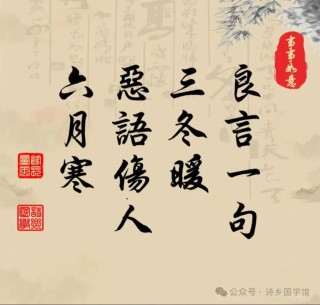 良言一句
三冬暖
惡語傷人
六月寒
事事如意
公众号 · 诗乡国学馆